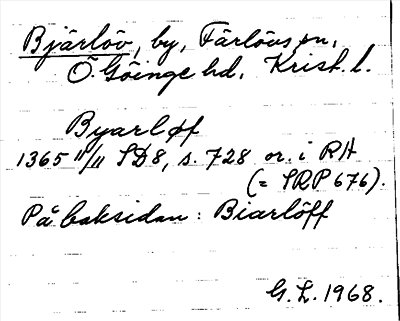 Bjärlöv, by, Färlövs sn,
Ö. Göinge hd, Krist. l.
Byarløff
1365 11/11 SD8, s. 728 or. i RH
(= SRP 676).
På baksidan: Biarlöff
G. L. 1968.